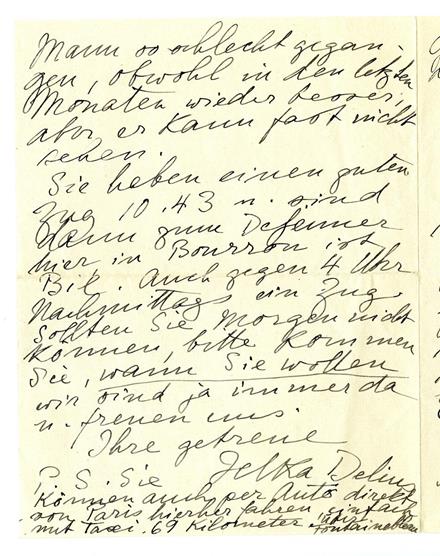 Mann so schlecht gegan-
gen, obwohl in den letzten
Monaten wieder besser,
aber er kann fast nicht
sehen.
Sie haben einen guten
Zug 10.43 u. sind
dann zum Dejeuner
hier in Bourron ist
Auch gegen 4 Uhr
Nachmittags ein Zug.
Sollten Sie morgen nicht
können, bitte kommen
Sie, wann Sie wollen
wir sind ja immer da
u. freuen uns.
Ihre getreue
Jelka Delius
P.S. Sie
können auch per Auto direkt
von Paris hierher fahren, einfach
mit Taxi. 69 Kilometer über
Fontainebleau